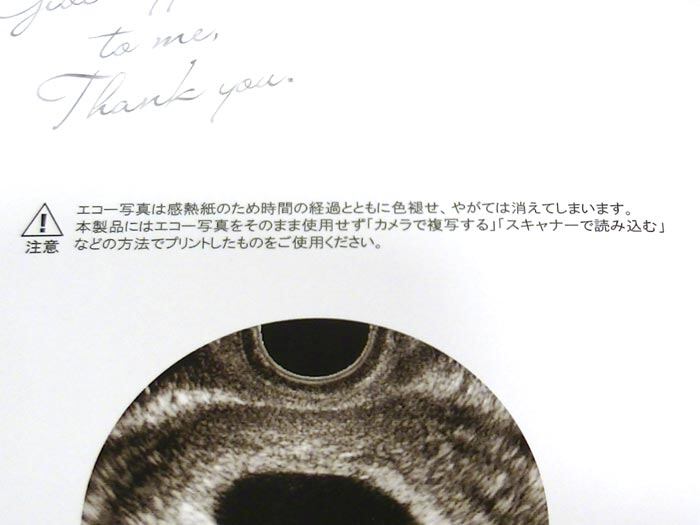 to me,
Thank you.
エコー写真は感熱紙のため時間の経過とともに色褪せ、やがては消えてしまいます。
本製品にはエコー写真をそのまま使用せず「カメラで複写する」「スキャナーで読み込む」
などの方法でプリントしたものをご使用ください。
注意